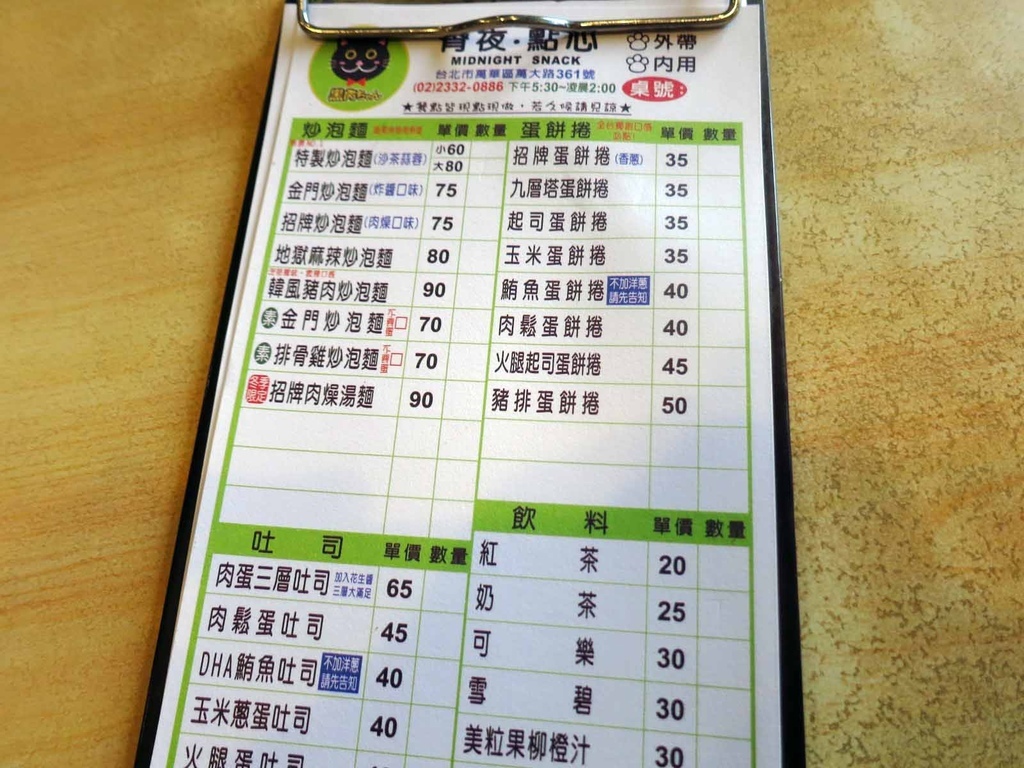 宵夜·點心
MIDNIGHT SNACK
台北市萬華區萬大路361號
(02)2332-0886 下午5:30~凌晨2:00
外帶
內用
桌號:
★餐點皆現點現做,若久候請見諒★
炒泡麵 單價 數量
特製炒泡麵(沙茶蒜蓉) 小60 大80
金門炒泡麵(炸醬口味) 75
招牌炒泡麵(肉燥口味) 75
地獄麻辣炒泡麵 80
韓風豬肉炒泡麵 90
素 金門炒泡麵 不要蛋□ 70
素 排骨雞炒泡麵 不要蛋□ 70
冬季限定 招牌肉燥湯麵 90
蛋餅捲 單價 數量
招牌蛋餅捲(香蔥) 35
九層塔蛋餅捲 35
起司蛋餅捲 35
玉米蛋餅捲 35
鮪魚蛋餅捲 不加洋蔥請先告知 40
肉鬆蛋餅捲 40
火腿起司蛋餅捲 45
豬排蛋餅捲 50
吐司 單價 數量
肉蛋三層吐司 加入花生醬三層大滿足 65
肉鬆蛋吐司 45
DHA鮪魚吐司 不加洋蔥請先告知 40
玉米蔥蛋吐司 40
火腿蛋吐司
飲料 單價 數量
紅茶 20
奶茶 25
可樂 30
雪碧 30
美粒果柳橙汁 30